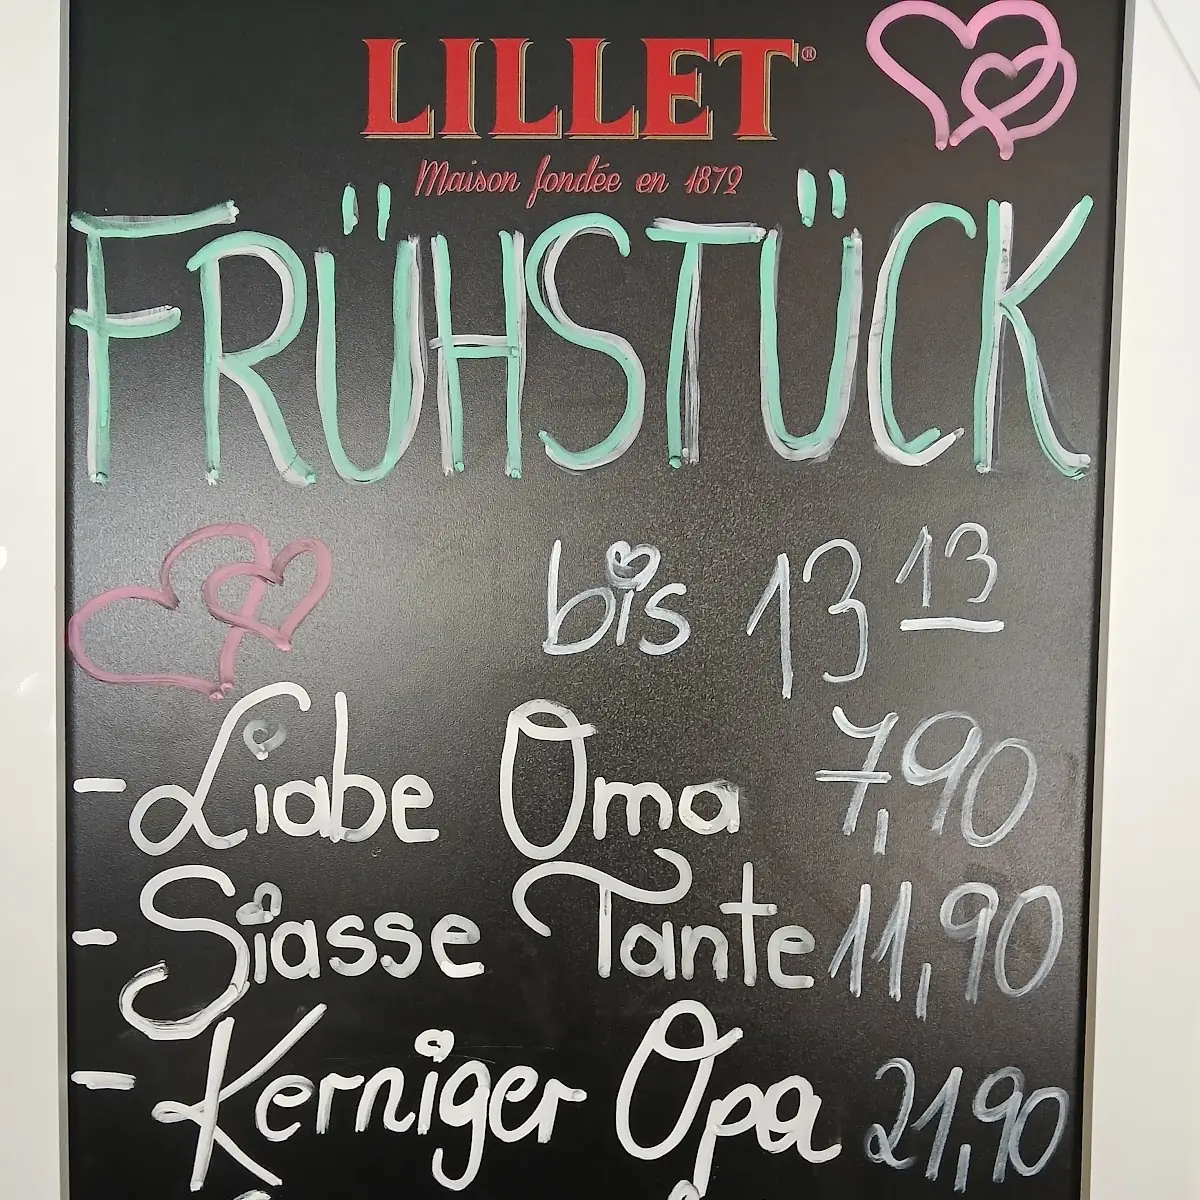 LILLET®
Maison fondée en 1872
FRÜHSTÜCK
bis 13 13
- Liabe Oma 7,90
- Siasse Tante 11,90
- Kerniger Opa 21,90